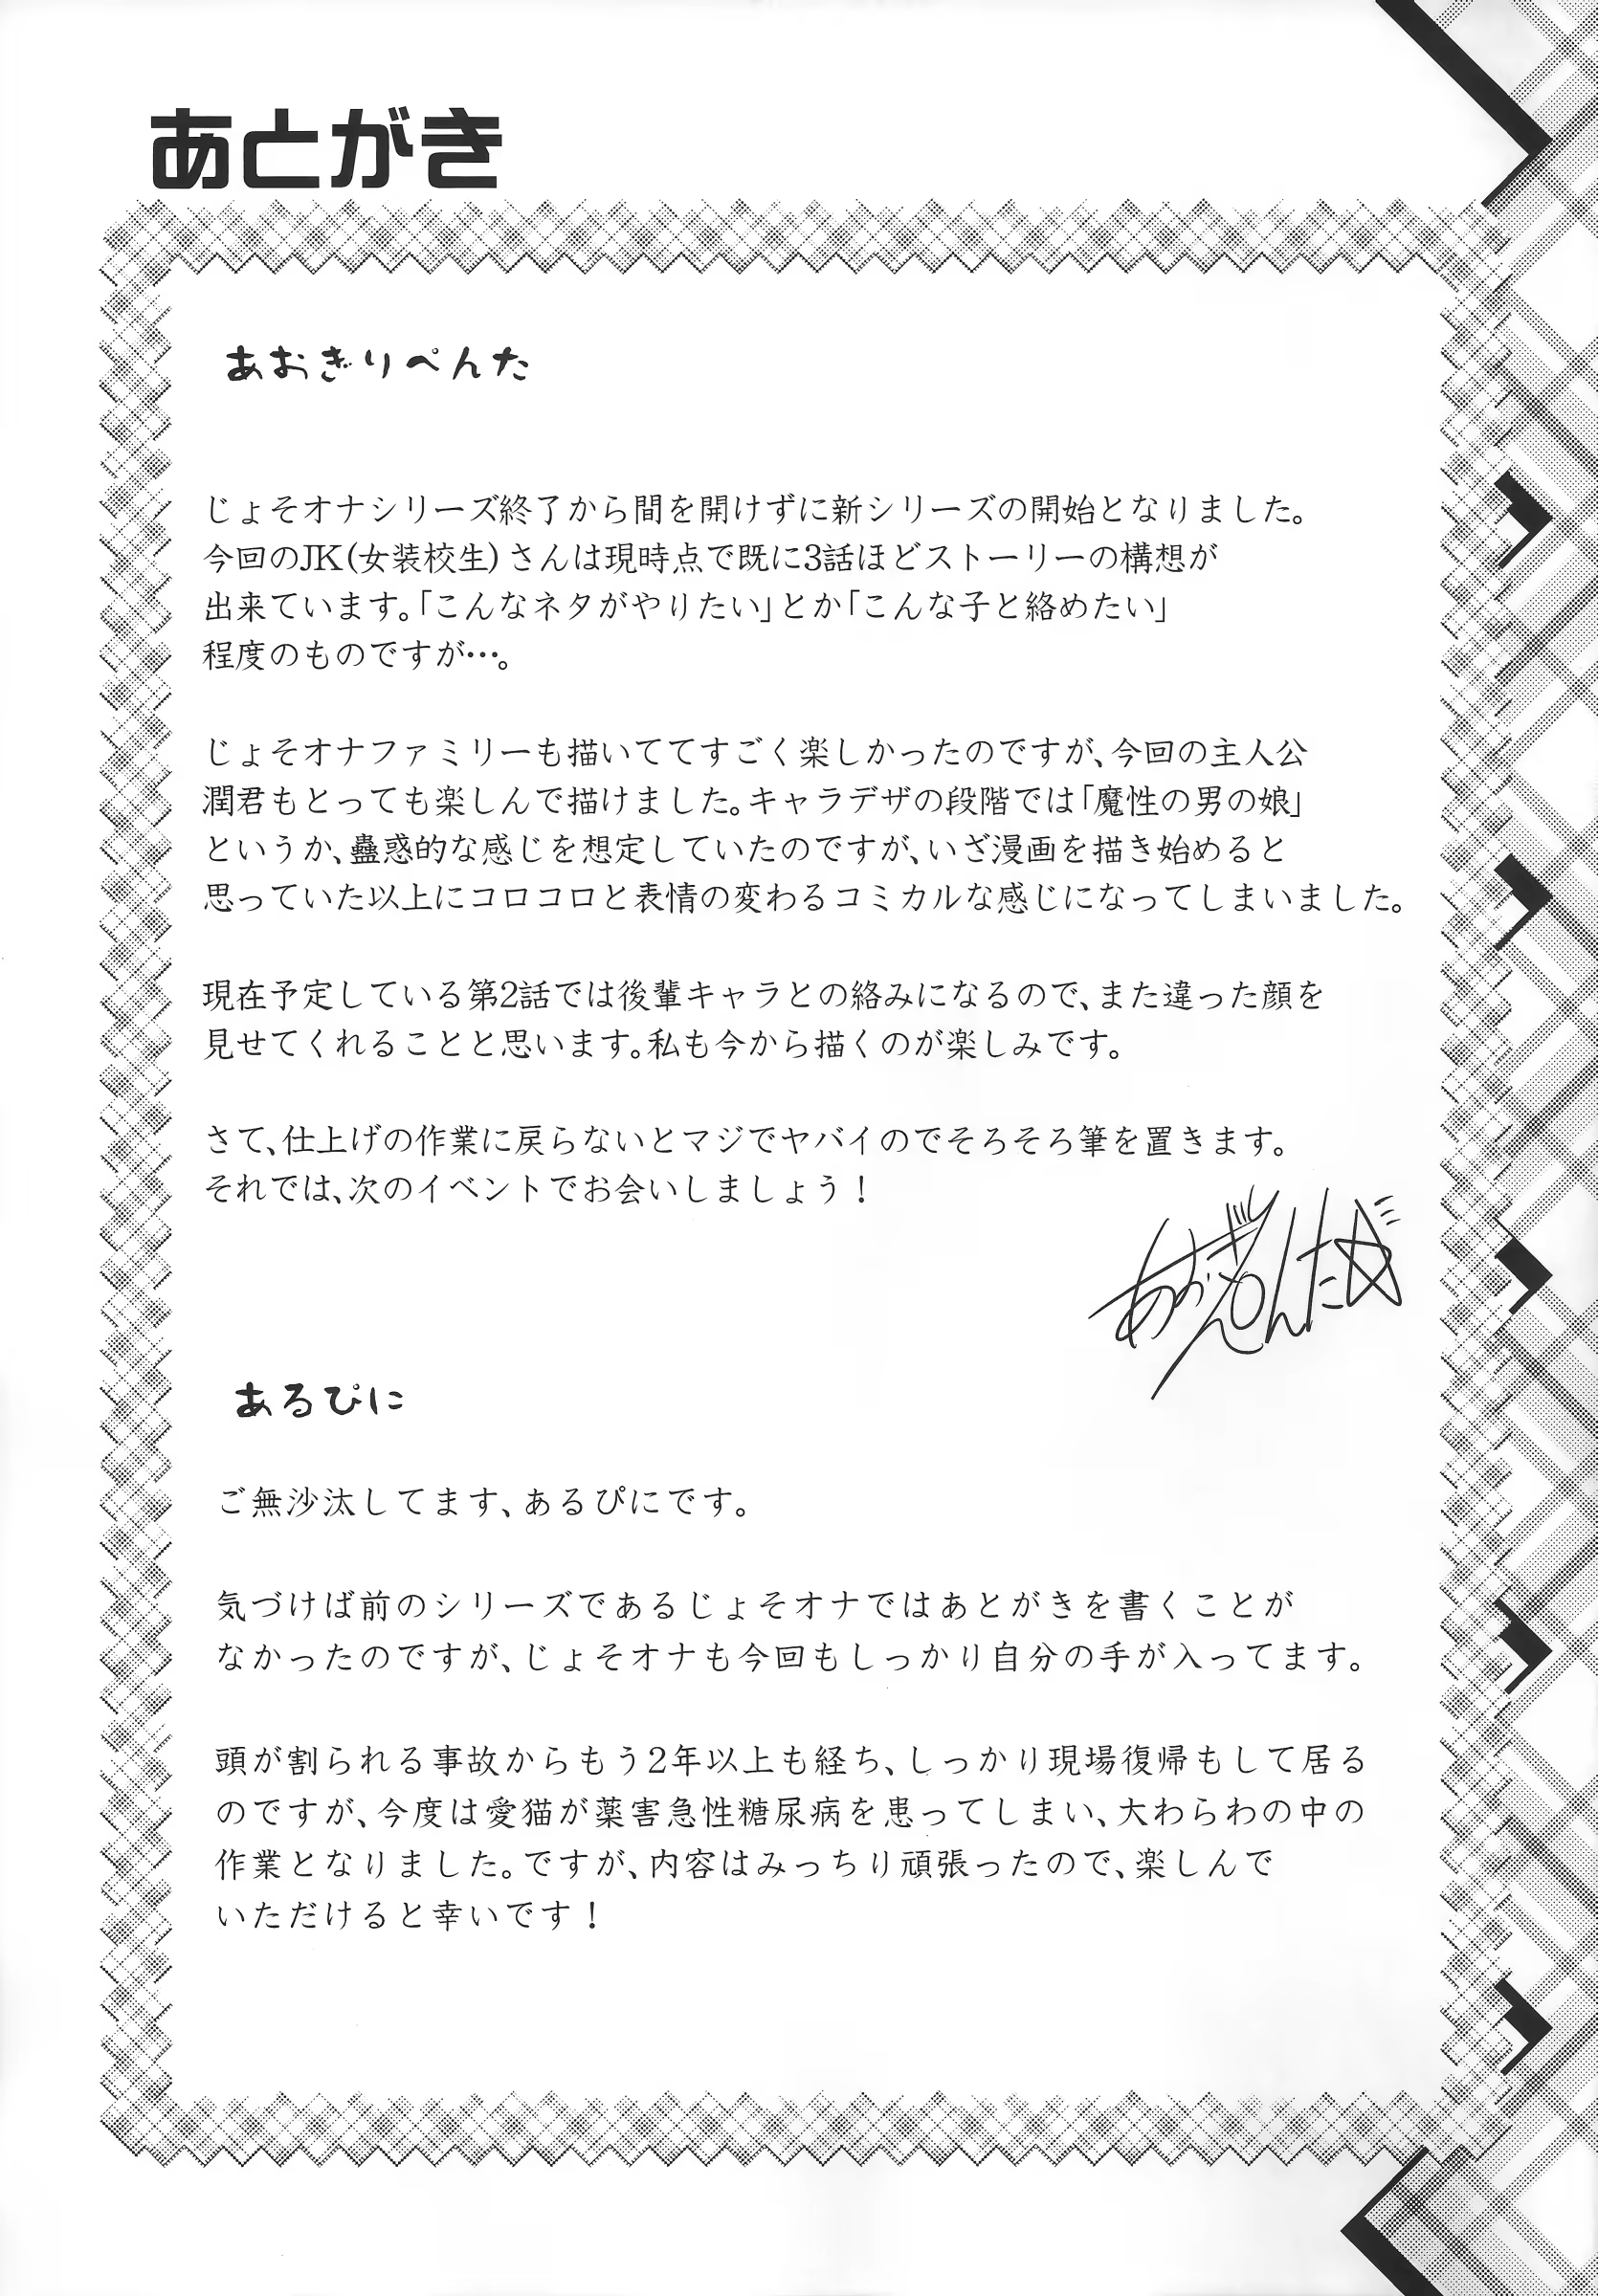 あとがき
あおぎりぺんた
じょそオナシリーズ終了から間を開けずに新シリーズの開始となりました。
今回のJK(女装校生)さんは現時点で既に3話ほどストーリーの構想が
出来ています。「こんなネタがやりたい」とか「こんな子と絡めたい」
程度のものですが…。
じょそオナファミリーも描いててすごく楽しかったのですが、今回の主人公
潤君もとっても楽しんで描けました。キャラデザの段階では「魔性の男の娘」
というか、蠱惑的な感じを想定していたのですが、いざ漫画を描き始めると
思っていた以上にコロコロと表情の変わるコミカルな感じになってしまいました。
現在予定している第2話では後輩キャラとの絡みになるので、また違った顔を
見せてくれることと思います。私も今から描くのが楽しみです。
さて、仕上げの作業に戻らないとマジでヤバイのでそろそろ筆を置きます。
それでは、次のイベントでお会いしましょう！
あおぎりぺんた☆
あるぴに
ご無沙汰してます、あるぴにです。
気づけば前のシリーズであるじょそオナではあとがきを書くことが
なかったのですが、じょそオナも今回もしっかり自分の手が入ってます。
頭が割られる事故からもう2年以上も経ち、しっかり現場復帰もして居る
のですが、今度は愛猫が薬害急性糖尿病を患ってしまい、大わらわの中の
作業となりました。ですが、内容はみっちり頑張ったので、楽しんで
いただけると幸いです！